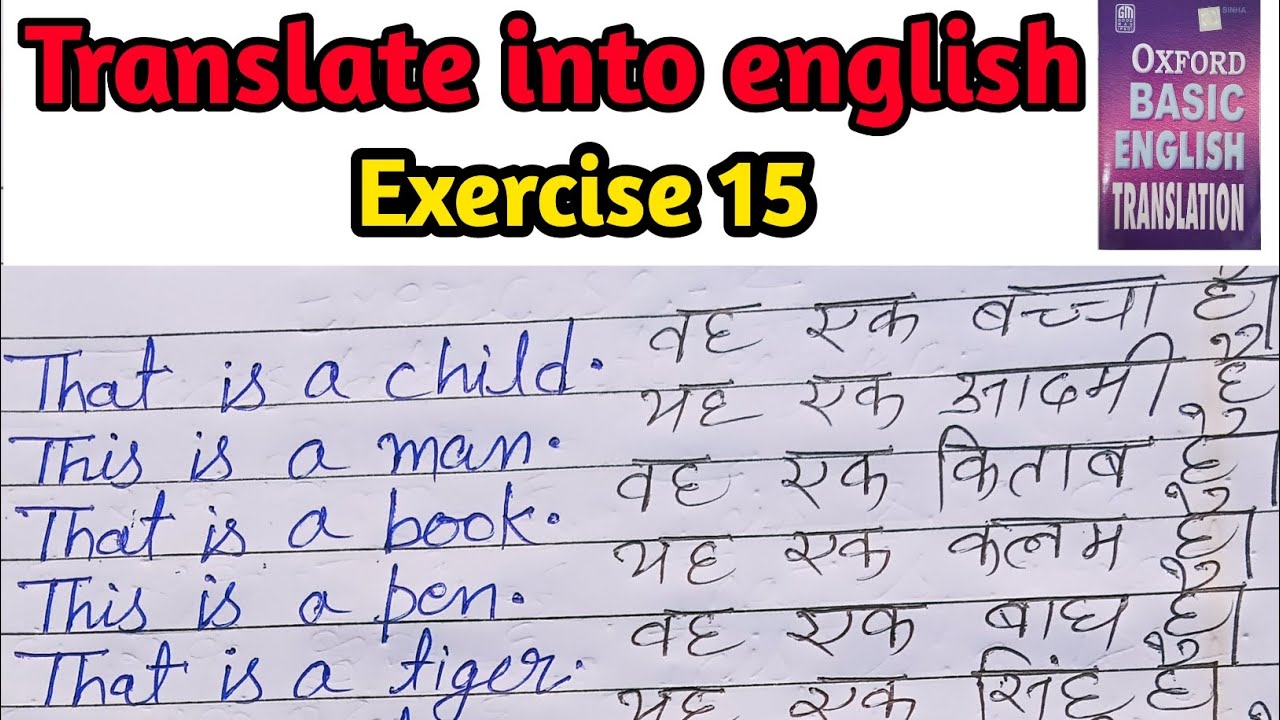 Translate into english
Exercise 15
GM
SINHA
OXFORD
BASIC
ENGLISH
TRANSLATION
That is a child. वह एक बच्चा है।
This is a man. यह एक आदमी है।
That is a book. वह एक किताब है।
This is a pen. यह एक कलम है।
That is a tiger. वह एक बाघ है।
यह एक सिंह है।